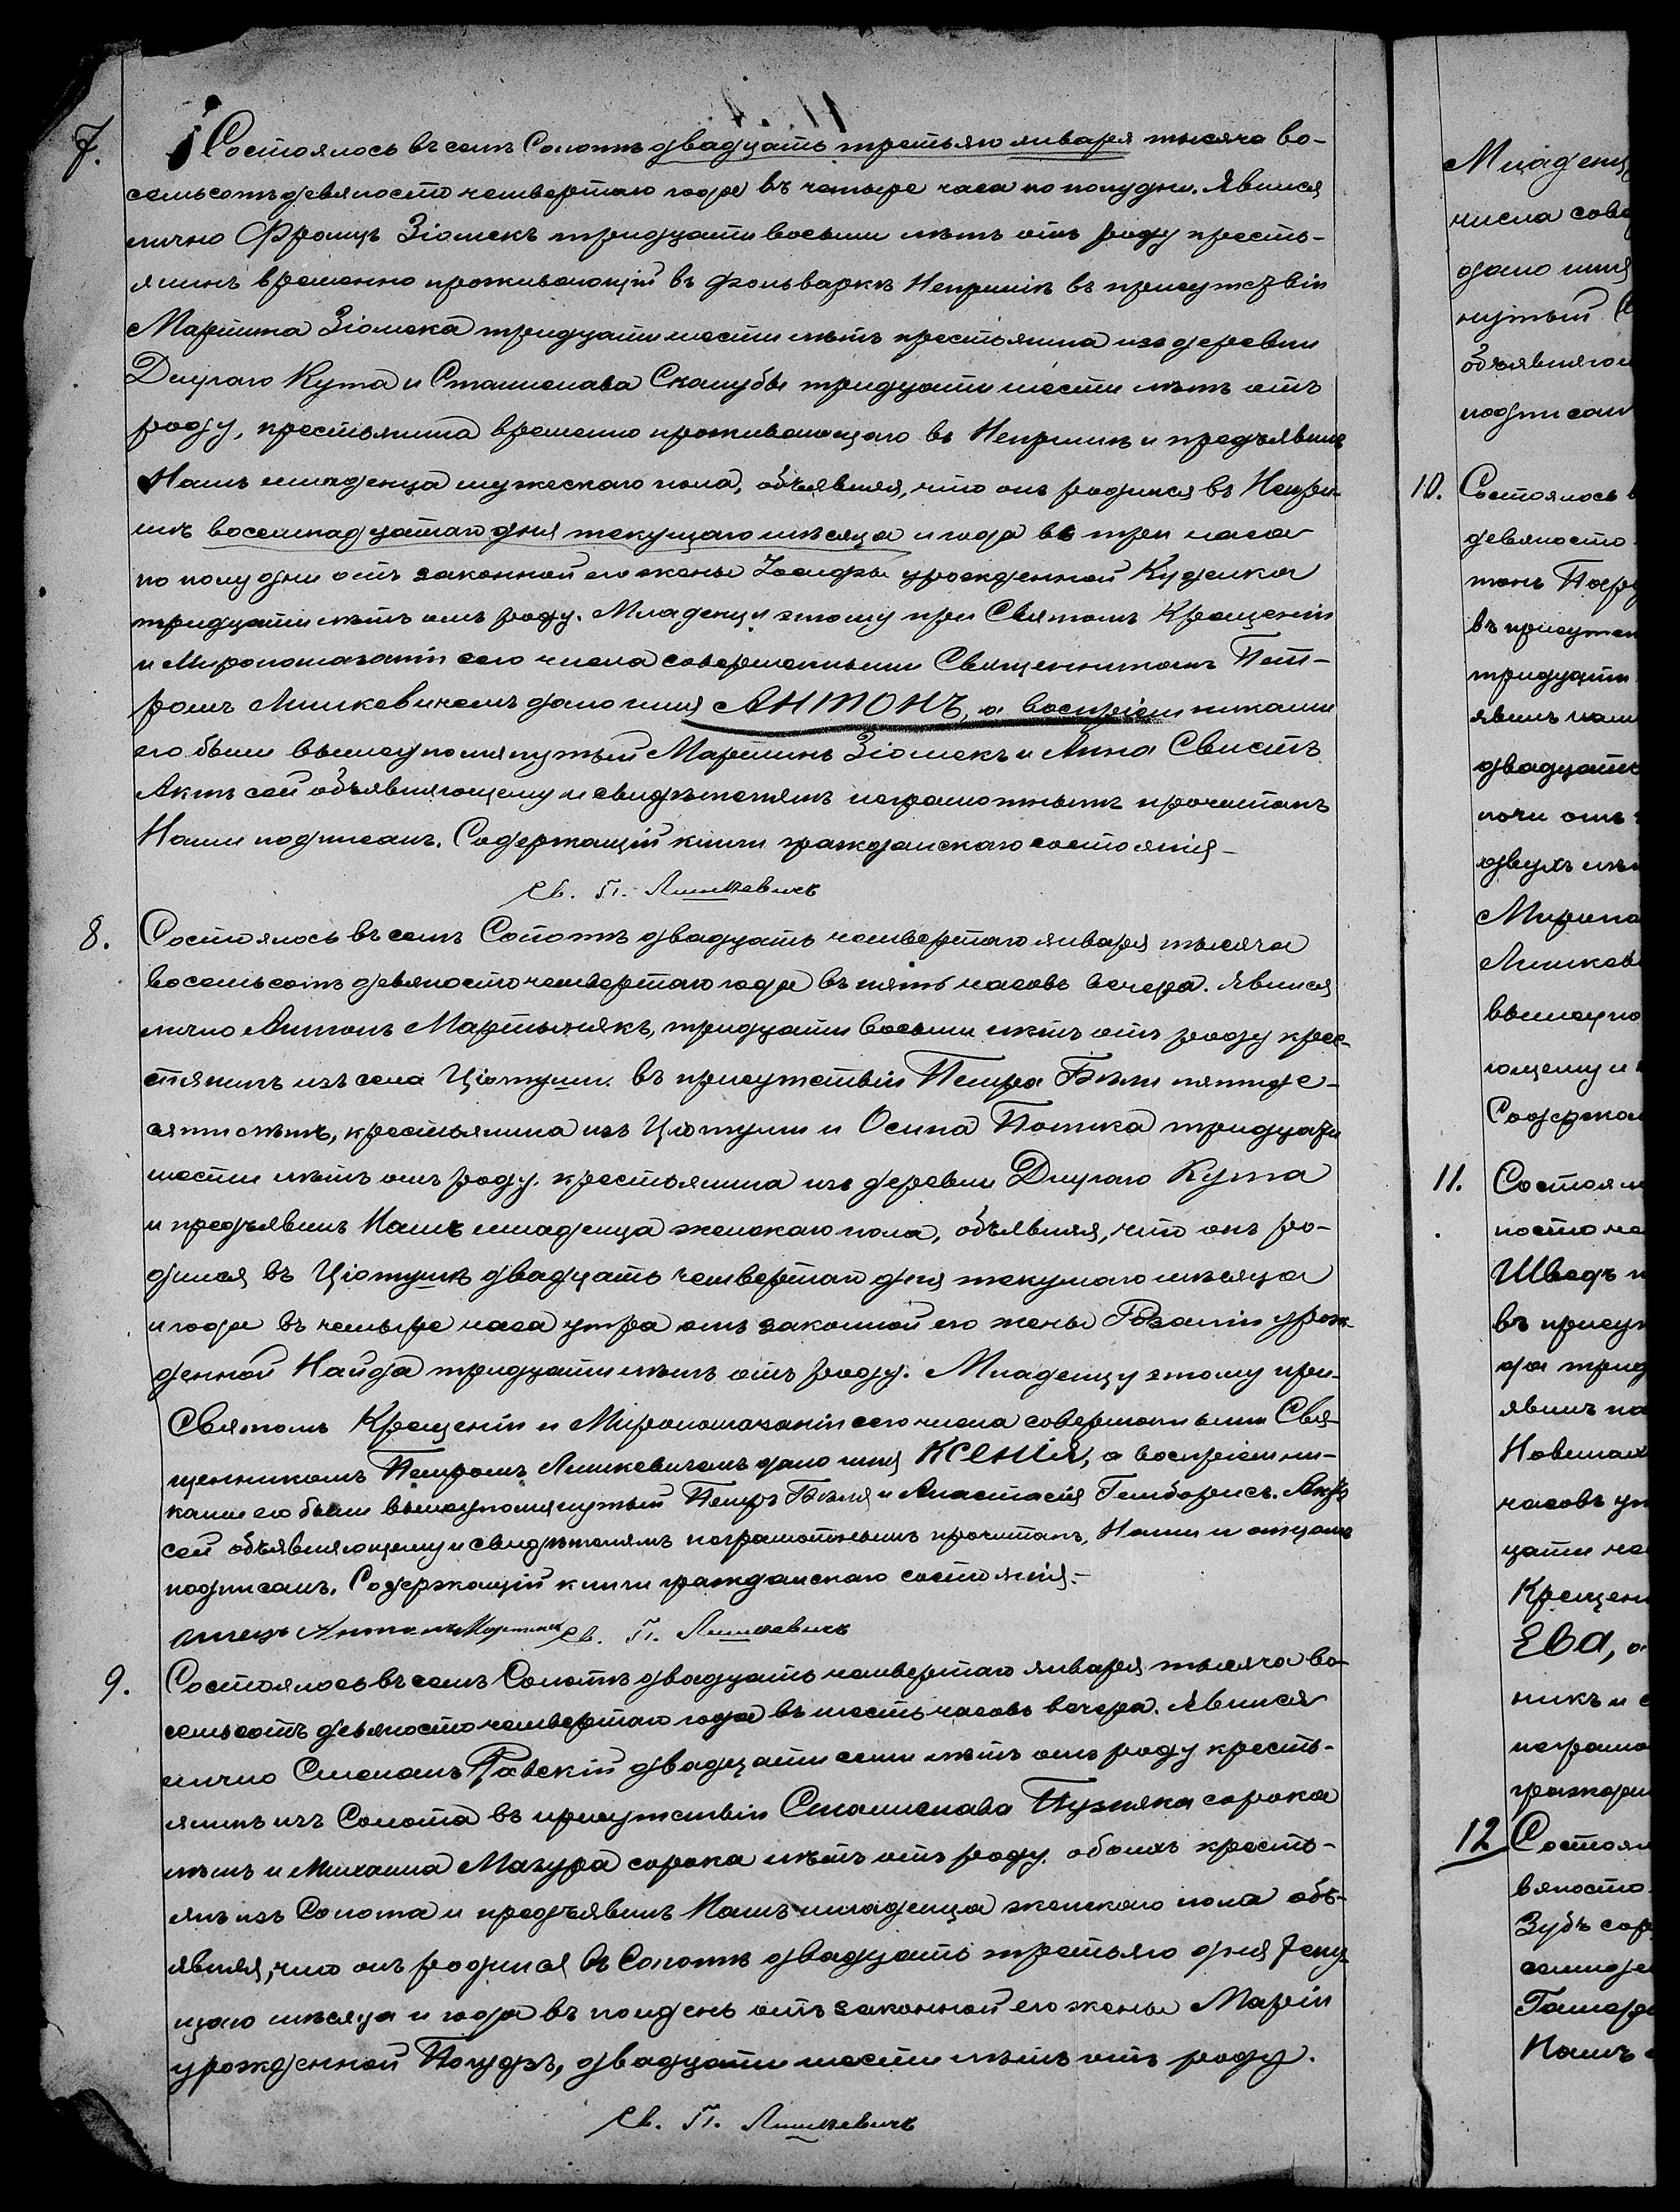 7.
Состоялось въ семъ Сопотѣ двадцать третьяго января тысяча во-
семьсотъ девяносто четвертаго года въ четыре часа по полудни. Явился
лично Францъ Зіомекъ тридцати восьми лѣтъ отъ роду кресть-
янинъ временно проживающій въ фольваркѣ Непришѣ въ присутствіи
Мартина Зіомека тридцати шести лѣтъ крестьянина изъ деревни
Длугаго Кута и Станислава Скалубы тридцати шести лѣтъ отъ
роду, крестьянина временно проживающаго въ Непришѣ и предъявилъ
Намъ младенца мужескаго пола, объявляя, что онъ родился въ Непри-
шѣ восемнадцатаго дня текущаго мѣсяца и года въ три часа
по полудни отъ законной его жены Юзефы урожденной Куделка
тридцати лѣтъ отъ роду. Младенцу этому при Святомъ Крещеніи
и Миропомазаніи сего числа совершенными Священникомъ Пет-
ромъ Лишкевичемъ дано имя АНТОНЪ, а воспріемниками
его были вышеупомянутый Мартинъ Зіомекъ и Анна Свистъ.
Актъ сей объявляющему и свидѣтелямъ неграмотнымъ прочитанъ
Нами подписанъ. Содержащій книги гражданскаго состоянія-
Св. П. Лишкевичъ
8.
Состоялось въ семъ Сопотѣ двадцать четвертаго января тысяча
восемьсотъ девяносто четвертаго года въ пять часовъ вечера. Явился
лично Антонъ Мартынякъ, тридцати восьми лѣтъ отъ роду крес-
тянинъ изъ села Ціотуши въ присутствіи Петра Бѣли пятиде-
сяти лѣтъ, крестьянина изъ Ціотуши и Осипа Потика тридцати
шести лѣтъ отъ роду крестьянина изъ деревни Длугаго Кута
и предъявилъ Намъ младенца женскаго пола, объявляя, что онъ ро-
дился въ Ціотушѣ двадцать четвертаго дня текущаго мѣсяца
и года въ четыре часа утра отъ законной его жены Розаліи урож-
денной Найда тридцати лѣтъ отъ роду. Младенцу этому при
Святомъ Крещеніи и Миропомазаніи сего числа совершенными Свя-
щенникомъ Петромъ Лишкевичемъ дано имя КСЕНІЯ, а воспріемни-
ками его были вышеупомянутый Петръ Бѣля и Анастасія Гемборысь. Актъ
сей объявляющему и свидѣтелямъ неграмотнымъ прочитанъ, Нами и отцомъ
подписанъ. Содержащій книги гражданскаго состоянія.-
отецъ Антонъ Мартыняк Св. П. Лишкевичъ
9.
Состоялось въ семъ Сопотѣ двадцать четвертаго января тысяча во-
семьсотъ девяносто четвертаго года въ шесть часовъ вечера. Явился
лично Степанъ Равскій двадцати семи лѣтъ отъ роду кресть-
янинъ изъ Сопота въ присутствіи Станислава Пузняка сорока
лѣтъ и Михаила Мазура сорока лѣтъ отъ роду обоихъ кресть-
янъ изъ Сопота и предъявилъ Намъ младенца женскаго пола объ-
являя, что онъ родился въ Сопотѣ двадцать третьяго дня теку-
щаго мѣсяца и года въ полдень отъ законной его жены Маріи
урожденной Полудзь, двадцати шести лѣтъ отъ роду.
Св. П. Лишкевичъ
Младенц
числа сове
дано имя
нутый
объявляю
подписан
10. Состоялось в
девяносто
тонъ
въ присутс
тридцати
явилъ нам
двадцать
ночи отъ
двухъ лѣт
Миропо
Лишкев
вышеупо
ющему и
Содержа
11. Состоял
носто че
Шведъ
въ присут
да трид
явилъ на
часовъ ут
цати
Крещен
ЕВА, а
никъ и с
неграмо
граждан
12 Состоял
вяносто
Зубъ сор
Намъ